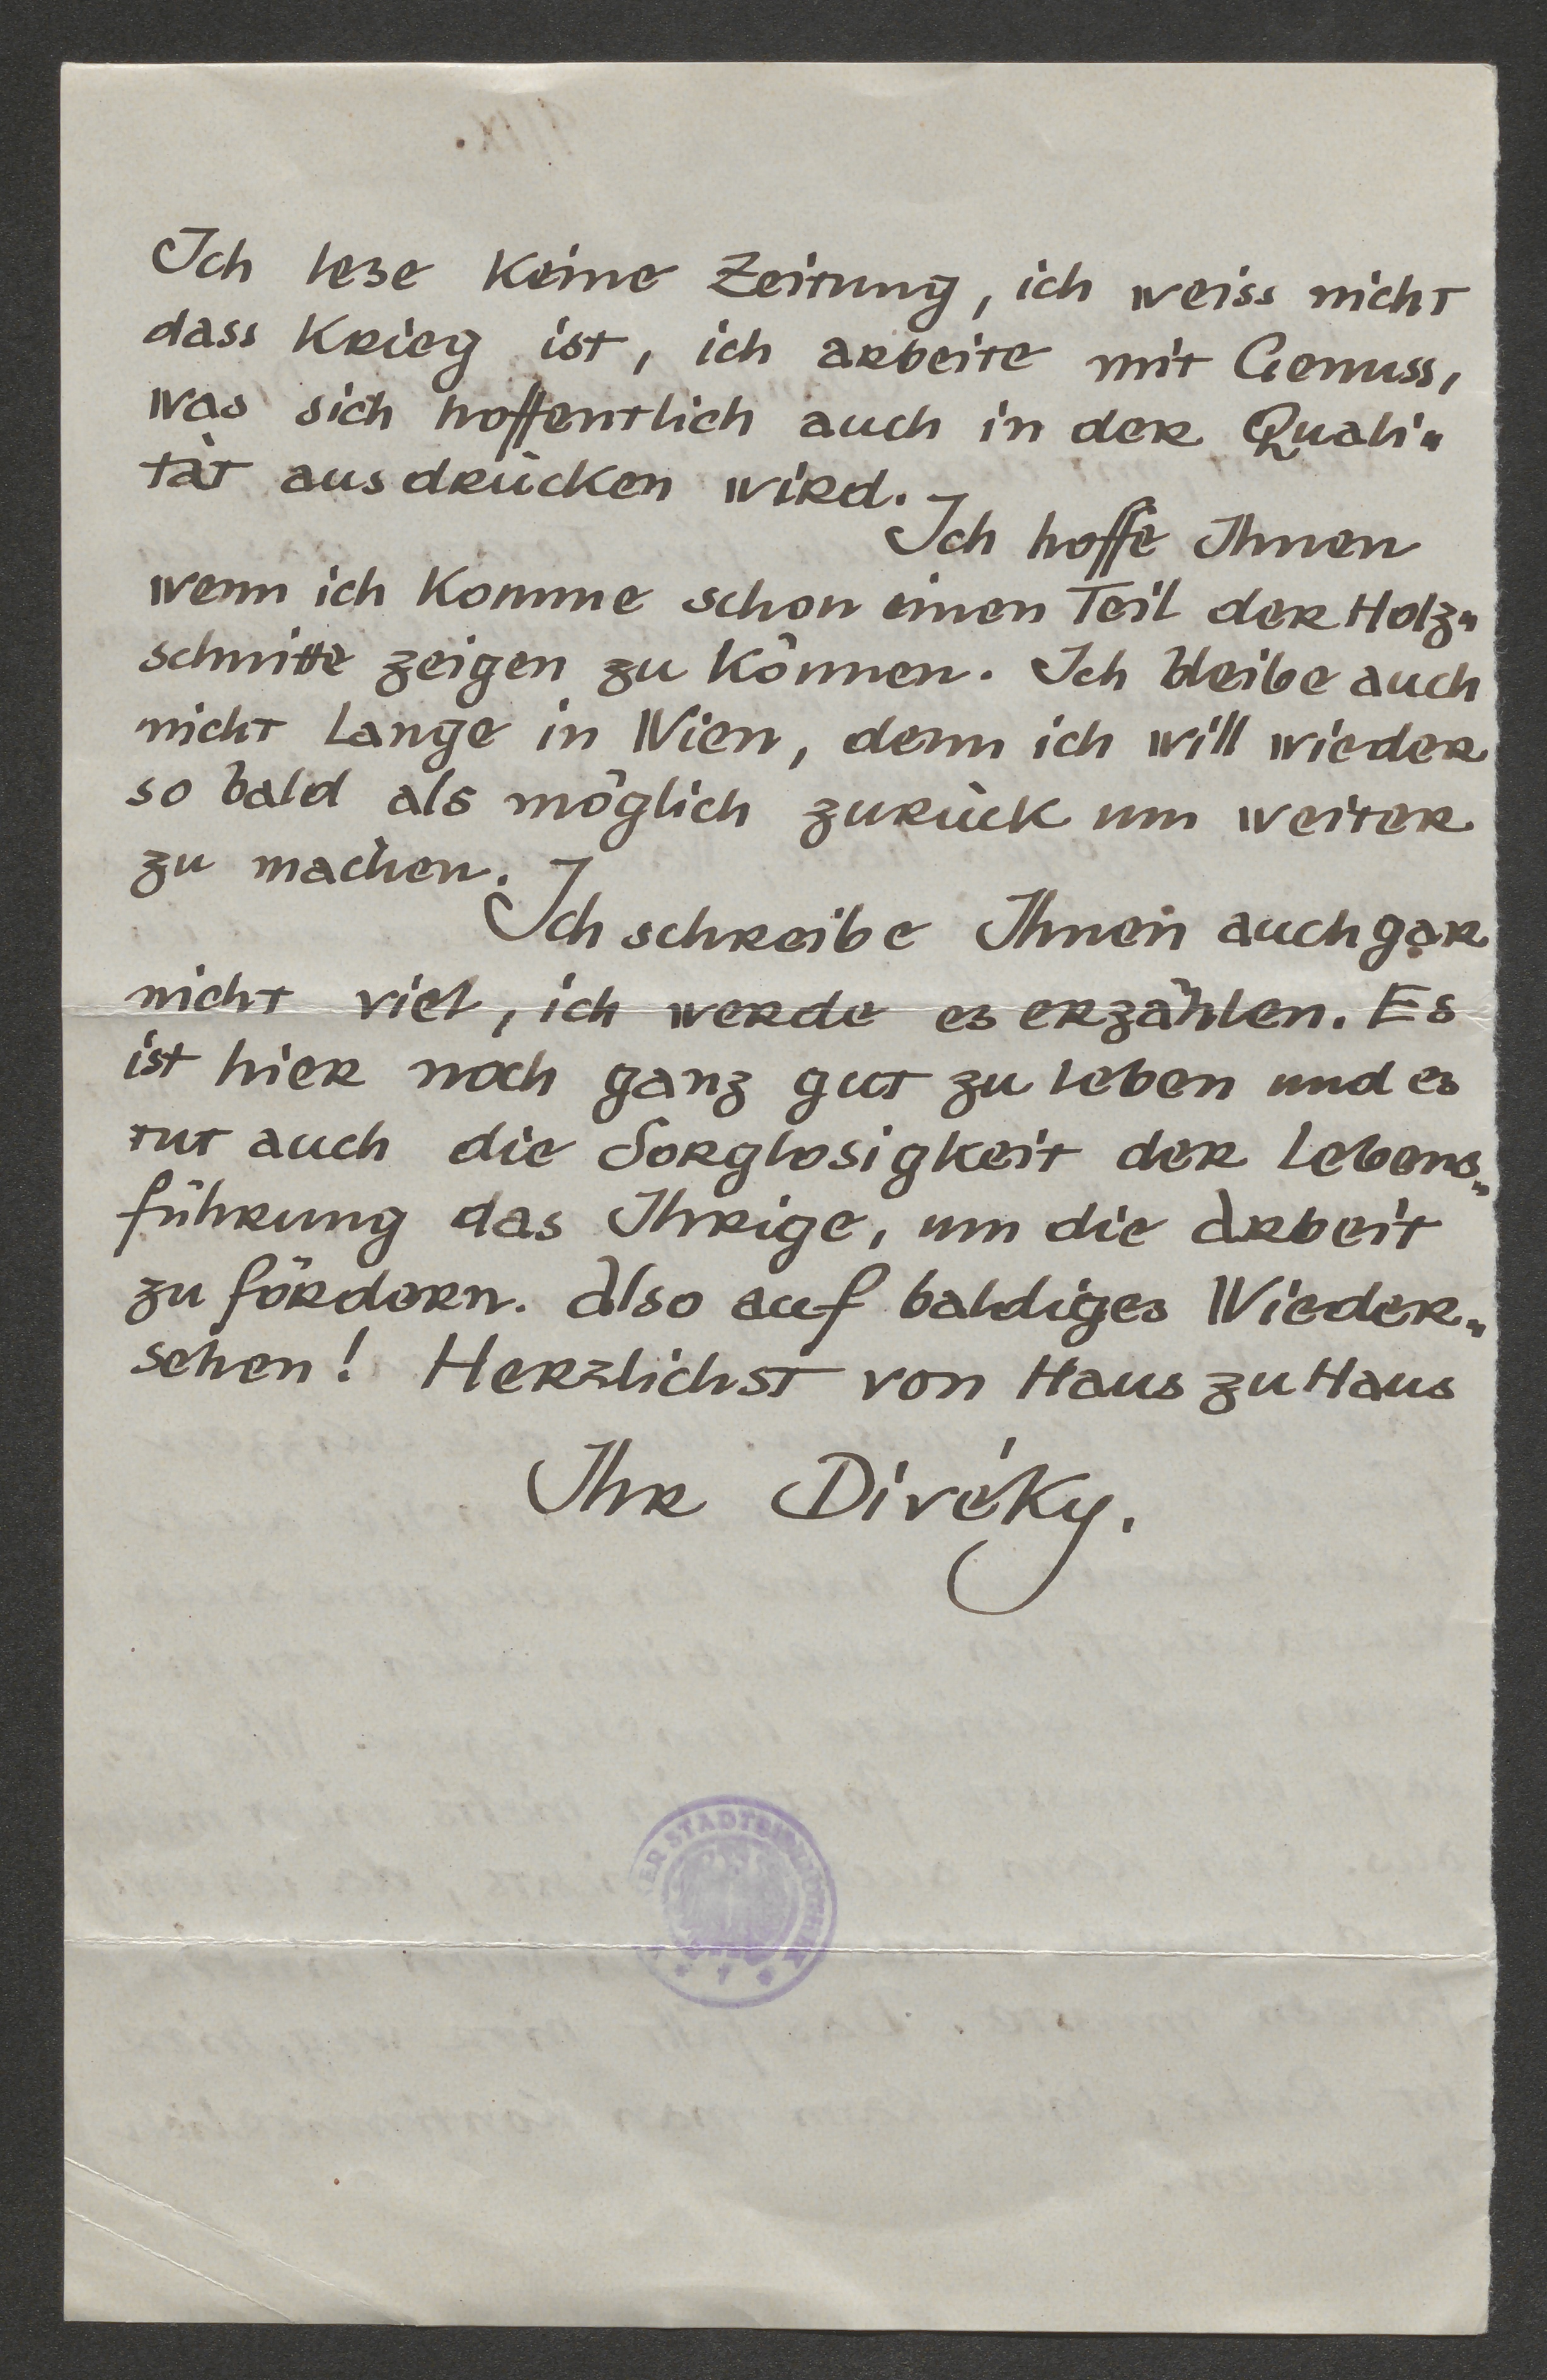 Ich lese keine Zeitung, ich weiss nicht
dass Krieg ist, ich arbeite mit Genuss,
was sich hoffentlich auch in der Quali=
tät ausdrücken wird.
Ich hoffe Ihnen
wenn ich komme schon einen Teil der Holz=
schnitte zeigen zu können. Ich bleibe auch
nicht lange in Wien, denn ich will wieder
so bald als möglich zurück um weiter
zu machen.
Ich schreibe Ihnen auch gar
nicht viel, ich werde es erzählen. Es
ist hier noch ganz gut zu leben und es
tut auch die Sorglosigkeit der Lebens=
führung das Ihrige, um die Arbeit
zu fördern. Also auf baldiges Wieder=
sehen! Herzlichst von Haus zu Haus
Ihr Divéky.